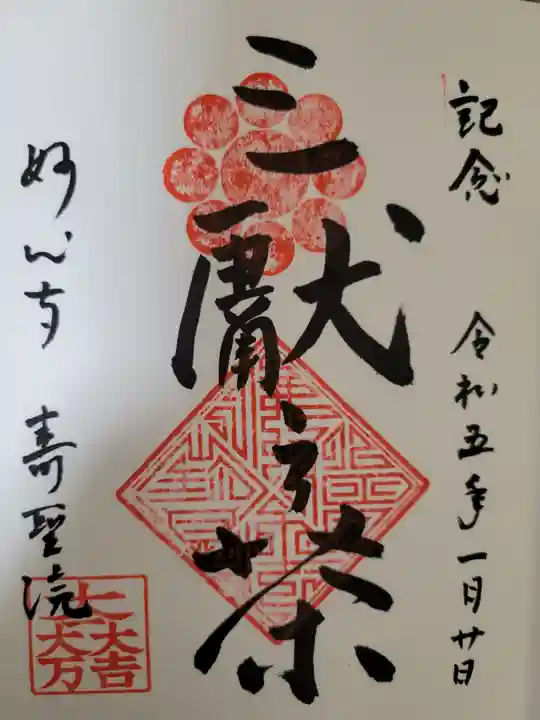 記念 令和五年一月廿日
三献之茶
妙心寺 寿聖院
大一大万大吉